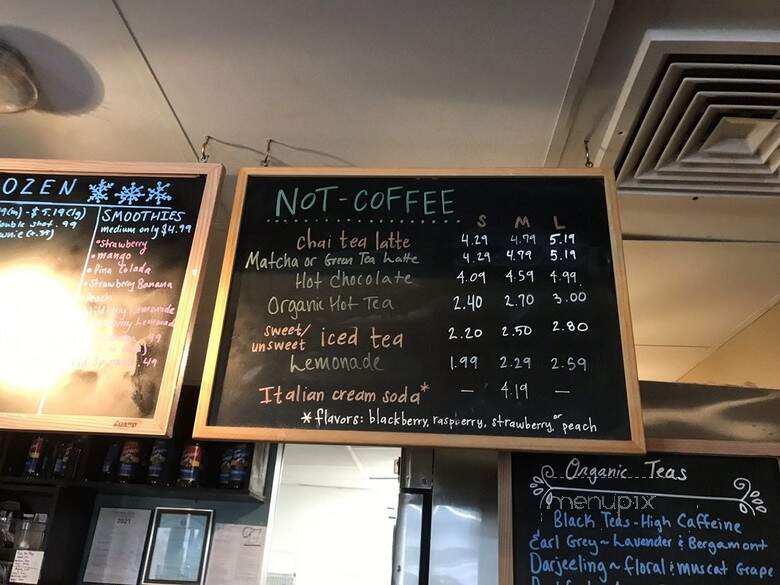 OZEN
9(m) - $5.19(lg)
ouble shot .99
wnie (+.75)
SMOOTHIES
medium only $4.99
•Strawberry
•mango
•Pina Colada
•Strawberry Banana
Peach
Lemonade
Lemonade
NOT-COFFEE
S M L
chai tea latte 4.29 4.79 5.19
Matcha or Green Tea Latte 4.29 4.79 5.19
Hot Chocolate 4.09 4.59 4.99
Organic Hot Tea 2.40 2.70 3.00
sweet/unsweet iced tea 2.20 2.50 2.80
Lemonade 1.99 2.29 2.59
Italian cream soda* — 4.19 —
*flavors: blackberry, raspberry, strawberry, or peach
2021
Organic Teas
menupix
Black Teas - High Caffeine
Earl Grey ~ Lavender & Bergamont
Darjeeling ~ floral & muscat Grape